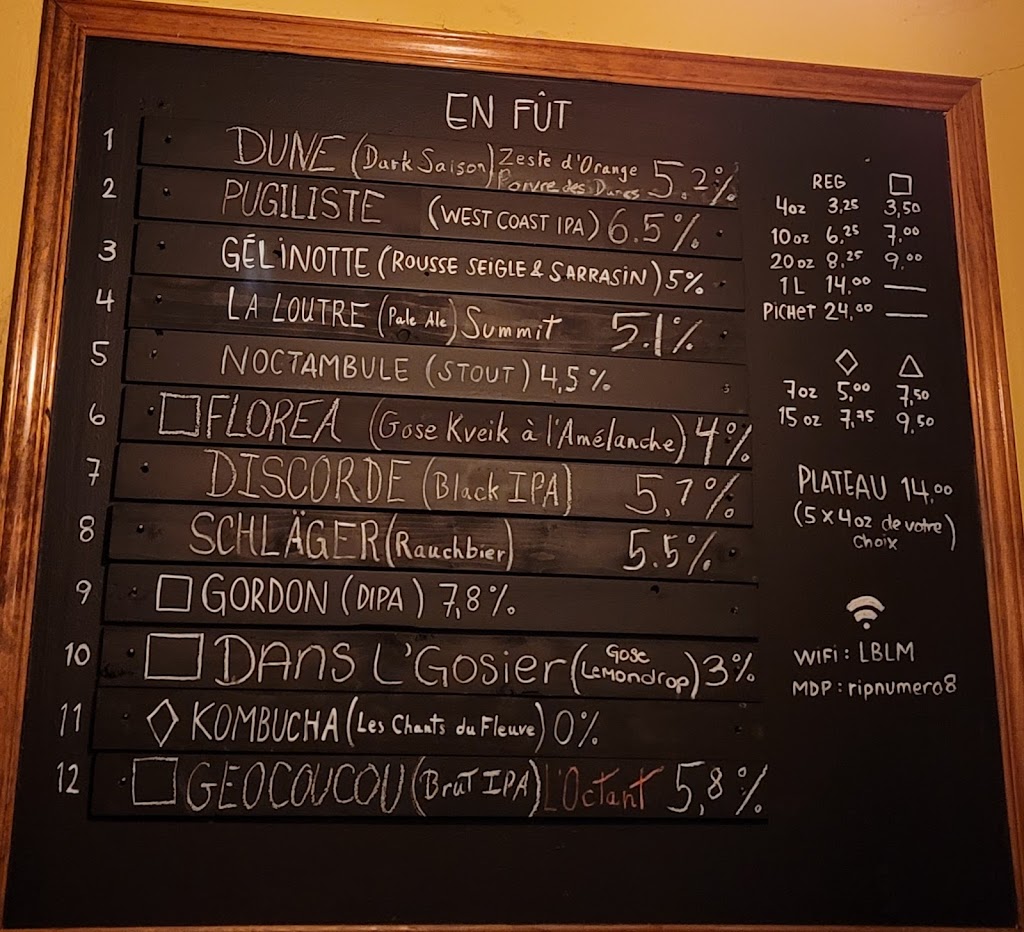 EN FÛT
1 DUNE (Dark Saison) Zeste d'Orange Poivre des Dunes 5.2%
2 PUGILISTE (WEST COAST IPA) 6.5%
3 GÉLINOTTE (ROUSSE SEIGLE & SARRASIN) 5%
4 LA LOUTRE (Pale Ale) Summit 5.1%
5 NOCTAMBULE (STOUT) 4,5%
6 FLOREA (Gose Kveik à l'Amélanche) 4%
7 DISCORDE (Black IPA) 5,7%
8 SCHLÄGER (Rauchbier) 5.5%
9 GORDON (DIPA) 7,8%
10 DANS L'GOSIER (GOSE LEMONDROP) 3%
11 KOMBUCHA (Les Chants du Fleuve) 0%
12 GEOCOUCOU (Brut IPA) L'Octant 5,8%
REG
4oz 3,25 3,50
10oz 6,25 7,00
20oz 8,25 9,00
1L 14,00 —
PICHET 24,00 —
7oz 5,00 7,50
15oz 7,75 9,50
PLATEAU 14,00
(5 x 4oz de votre choix)
WiFi : LBLM
MDP : ripnumero8